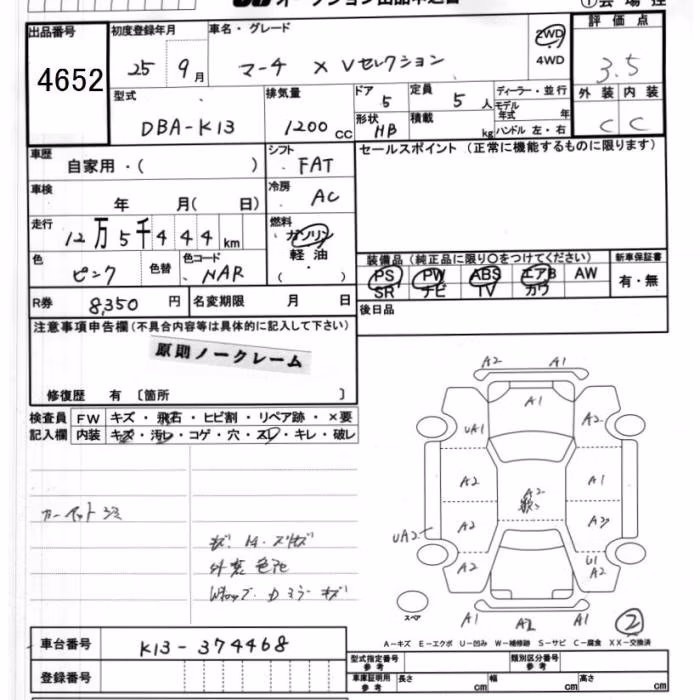 出品番号
4652
初度登録年月
25 9月
車名・グレード
マーチ X Vセレクション
2WD
4WD
評価点
3.5
型式
DBA-K13
排気量
1200 CC
ドア
5
形状
HB
定員
5 人
積載
kg
ディーラー・並行
モデル
年式 年
ハンドル 左・右
外装 内装
C C
車歴
自家用・( )
シフト
FAT
セールスポイント (正常に機能するものに限ります)
車検
年 月( 日)
冷房
AC
走行
12万5千444km
燃料
ガソリン
軽油
( ・ )
色
ピンク
色替
色コード
NAR
装備品 (純正品に限り○をつけてください)
PS PW ABS エアB AW
SR ナビ TV カワ
新車保証書
有・無
R券 8,350 円
名変期限 月 日
後日品
注意事項申告欄(不具合内容等は具体的に記入して下さい)
原則ノークレーム
修復歴 有 〔箇所 〕
検査員
記入欄
FW キズ・飛石・ヒビ割・リペア跡・×要
内装 キズ・汚レ・コゲ・穴・スレ・キレ・破レ
外装色アセ
A2 A1
A1
UA1 A2
A2 A2 A1
A2 A2
UA2
A2 U1
A2
スペア
A1 A2 A1
2
A-キズ E-エクボ U-凹み W-補修跡 S-サビ C-腐食 XX-交換済
車台番号 K13-374468
登録番号
型式指定番号
参考
類別区分番号
参考
車庫証明用
参考
長さ cm 幅 cm 高さ cm